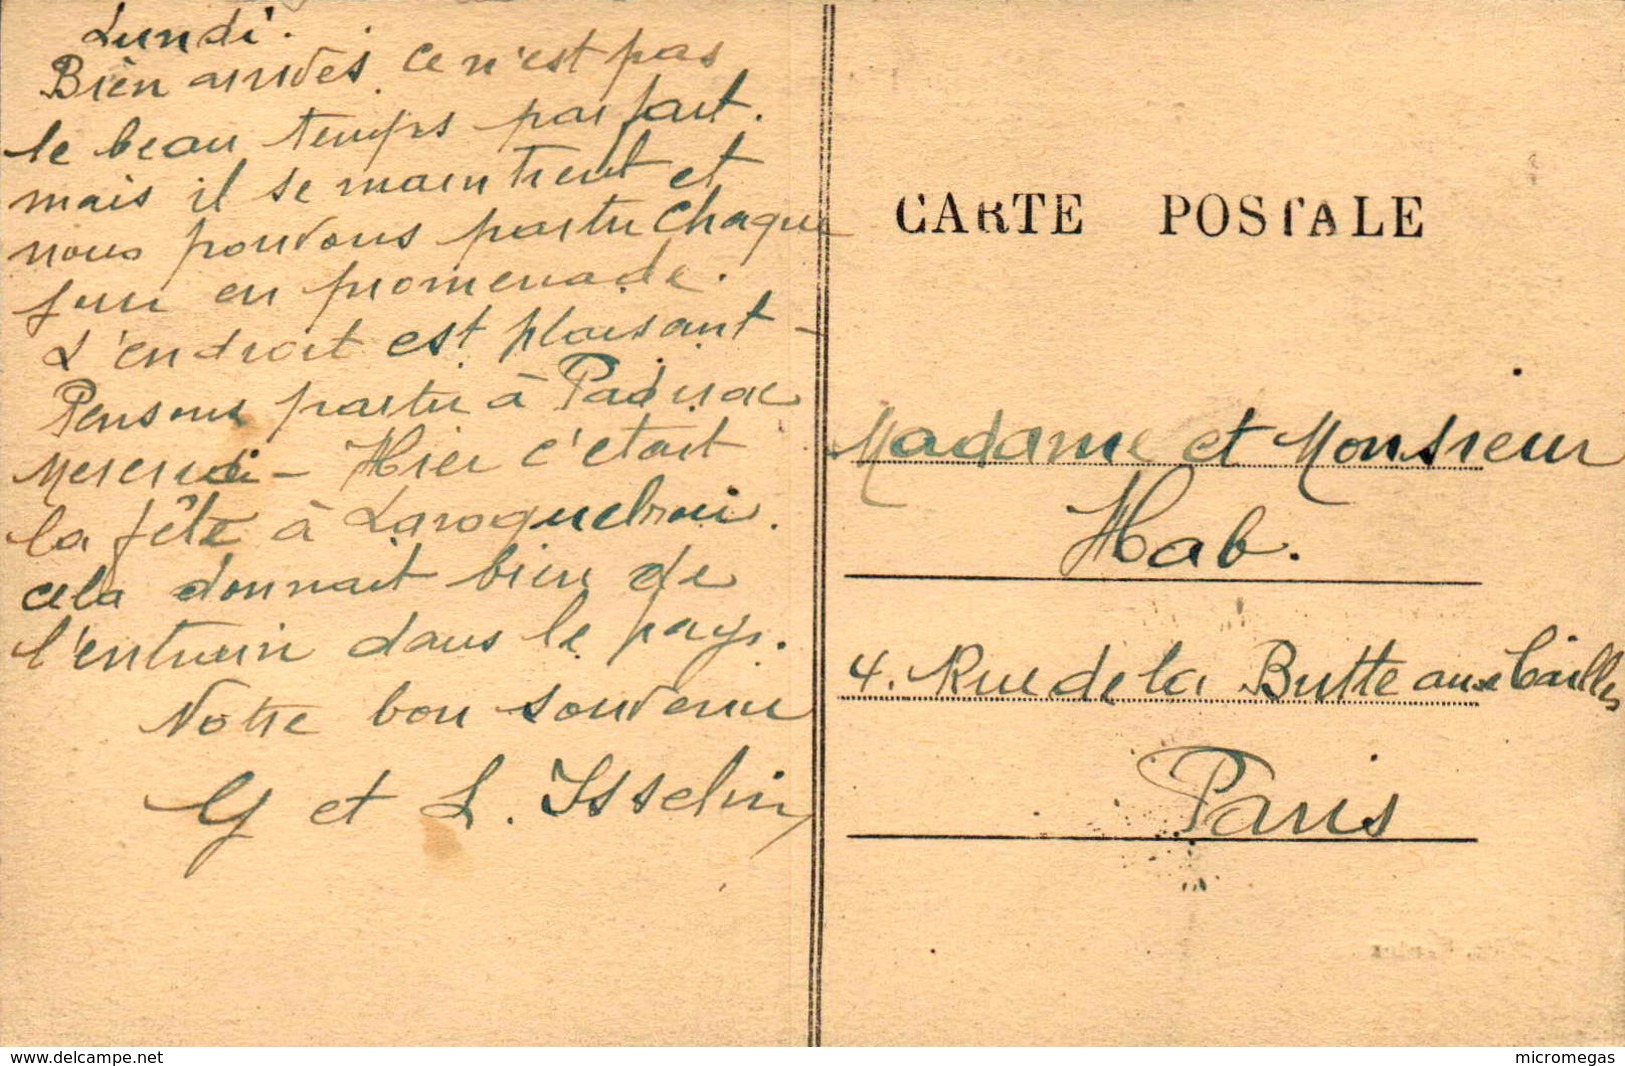 Lundi.
Bien arrivés. Ce n'est pas
le beau temps parfait.
mais il se maintient et
nous pouvons partir chaque
jour en promenade.
L'endroit est plaisant -
Pensons partir à Padirac
Mercredi - Hier c'était
la fête à Laroquebrou.
cela donnait bien de
l'entrain dans le pays.
Notre bon souvenir
G et L. Isselin
CARTE POSTALE
Madame et Monsieur
Hab.
4. Rue de la Butte aux Cailles
Paris
www.delcampe.net
micromegas